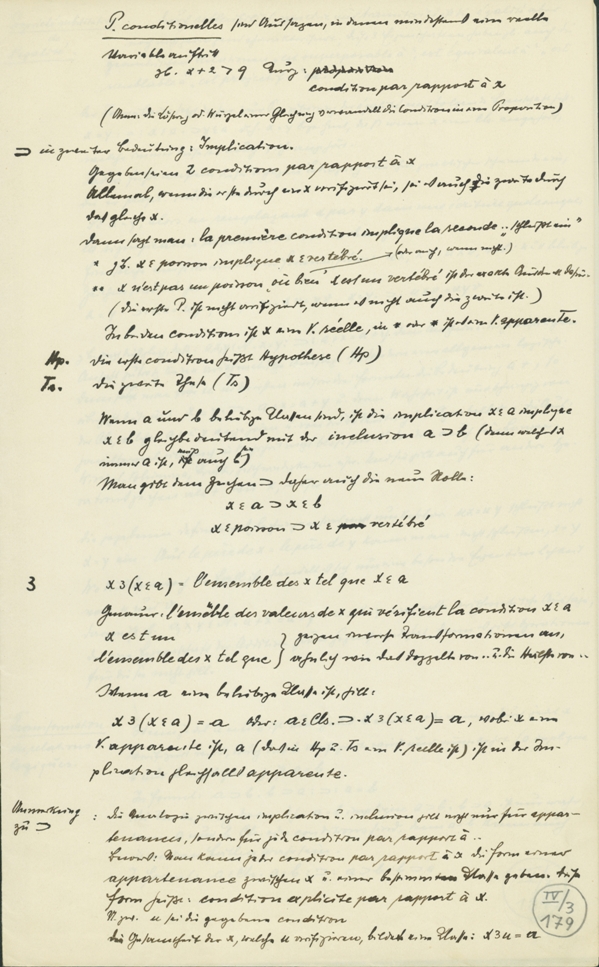 P. conditionelles sind Aussagen, in denen mindestens eine reelle
Variable auftritt
zb. x+2>9 kurz:
condition par rapport à x
(Anm: die Lösung od. Wurzel einer Gleichung verwandelt die Condition in eine Proposition)
⊃ in zweiter Bedeutung: Implication.
Gegeben seien 2 conditions par rapport à x
Allemal, wenn die erste durch ein x verifiziert sei, sei es auch die zweite durch
das gleiche x.
dann sagt man: la première condition implique la seconde
" zb. x ε poisson implique x ε vertébré. (oder auch, wenn nicht.)
x n'est pas un poisson, ou bien x est un vertébré ist der exakte
(die erste P. ist nicht verifiziert, wenn es nicht auch die zweite ist.)
In beiden conditions ist x eine V. réelle, in * oder * ist es eine V. apparente.
Hp. die erste condition heißt Hypothese (Hp)
Ts. die zweite These (Ts)
Wenn a und b beliebige Classen sind, ist die implication x ε a implique
x ε b gleichbedeutend mit der inclusion a ⊃ b (denn welches x
immer a ist, muß auch b)
Man gibt dem Zeichen ⊃ daher auch die neue Rolle:
x ε a ⊃ x ε b
x ε poisson ⊃ x ε vertébré
3 x з (x ε a) = l'ensemble des x tel que x ε a
Genauer: l'ensemble des valeurs de x qui vérifient la condition x ε a
x est un
l'ensemble des x tel que } zeigen inverse Transformationen an,
ähnlich wie das doppelte von .. u. die Hälfte von ..
Wenn a eine beliebige Classe ist, gilt:
x з (x ε a) = a oder: a ε Cls. ⊃ . x з (x ε a) = a, wobei x eine
V. apparente ist, a (das in Hp u. Ts eine V. réelle ist) ist in der Im-
plication gleichfalls apparente.
Anmerkung
zu ⊃ : die Analogie zwischen implication u. inclusion gilt nicht nur für appar-
tenances, sondern für jede condition par rapport à ..
Bew: Man kann jeder condition par rapport à x die form einer
appartenance zwischen x u. einer bestimmten Classe geben. diese
form heiße: condition explicite par rapport à x.
u sei die gegebene condition
die Gesamtheit der x, welche u verifizieren, bildet eine Classe: x з u = a
IV/3
179